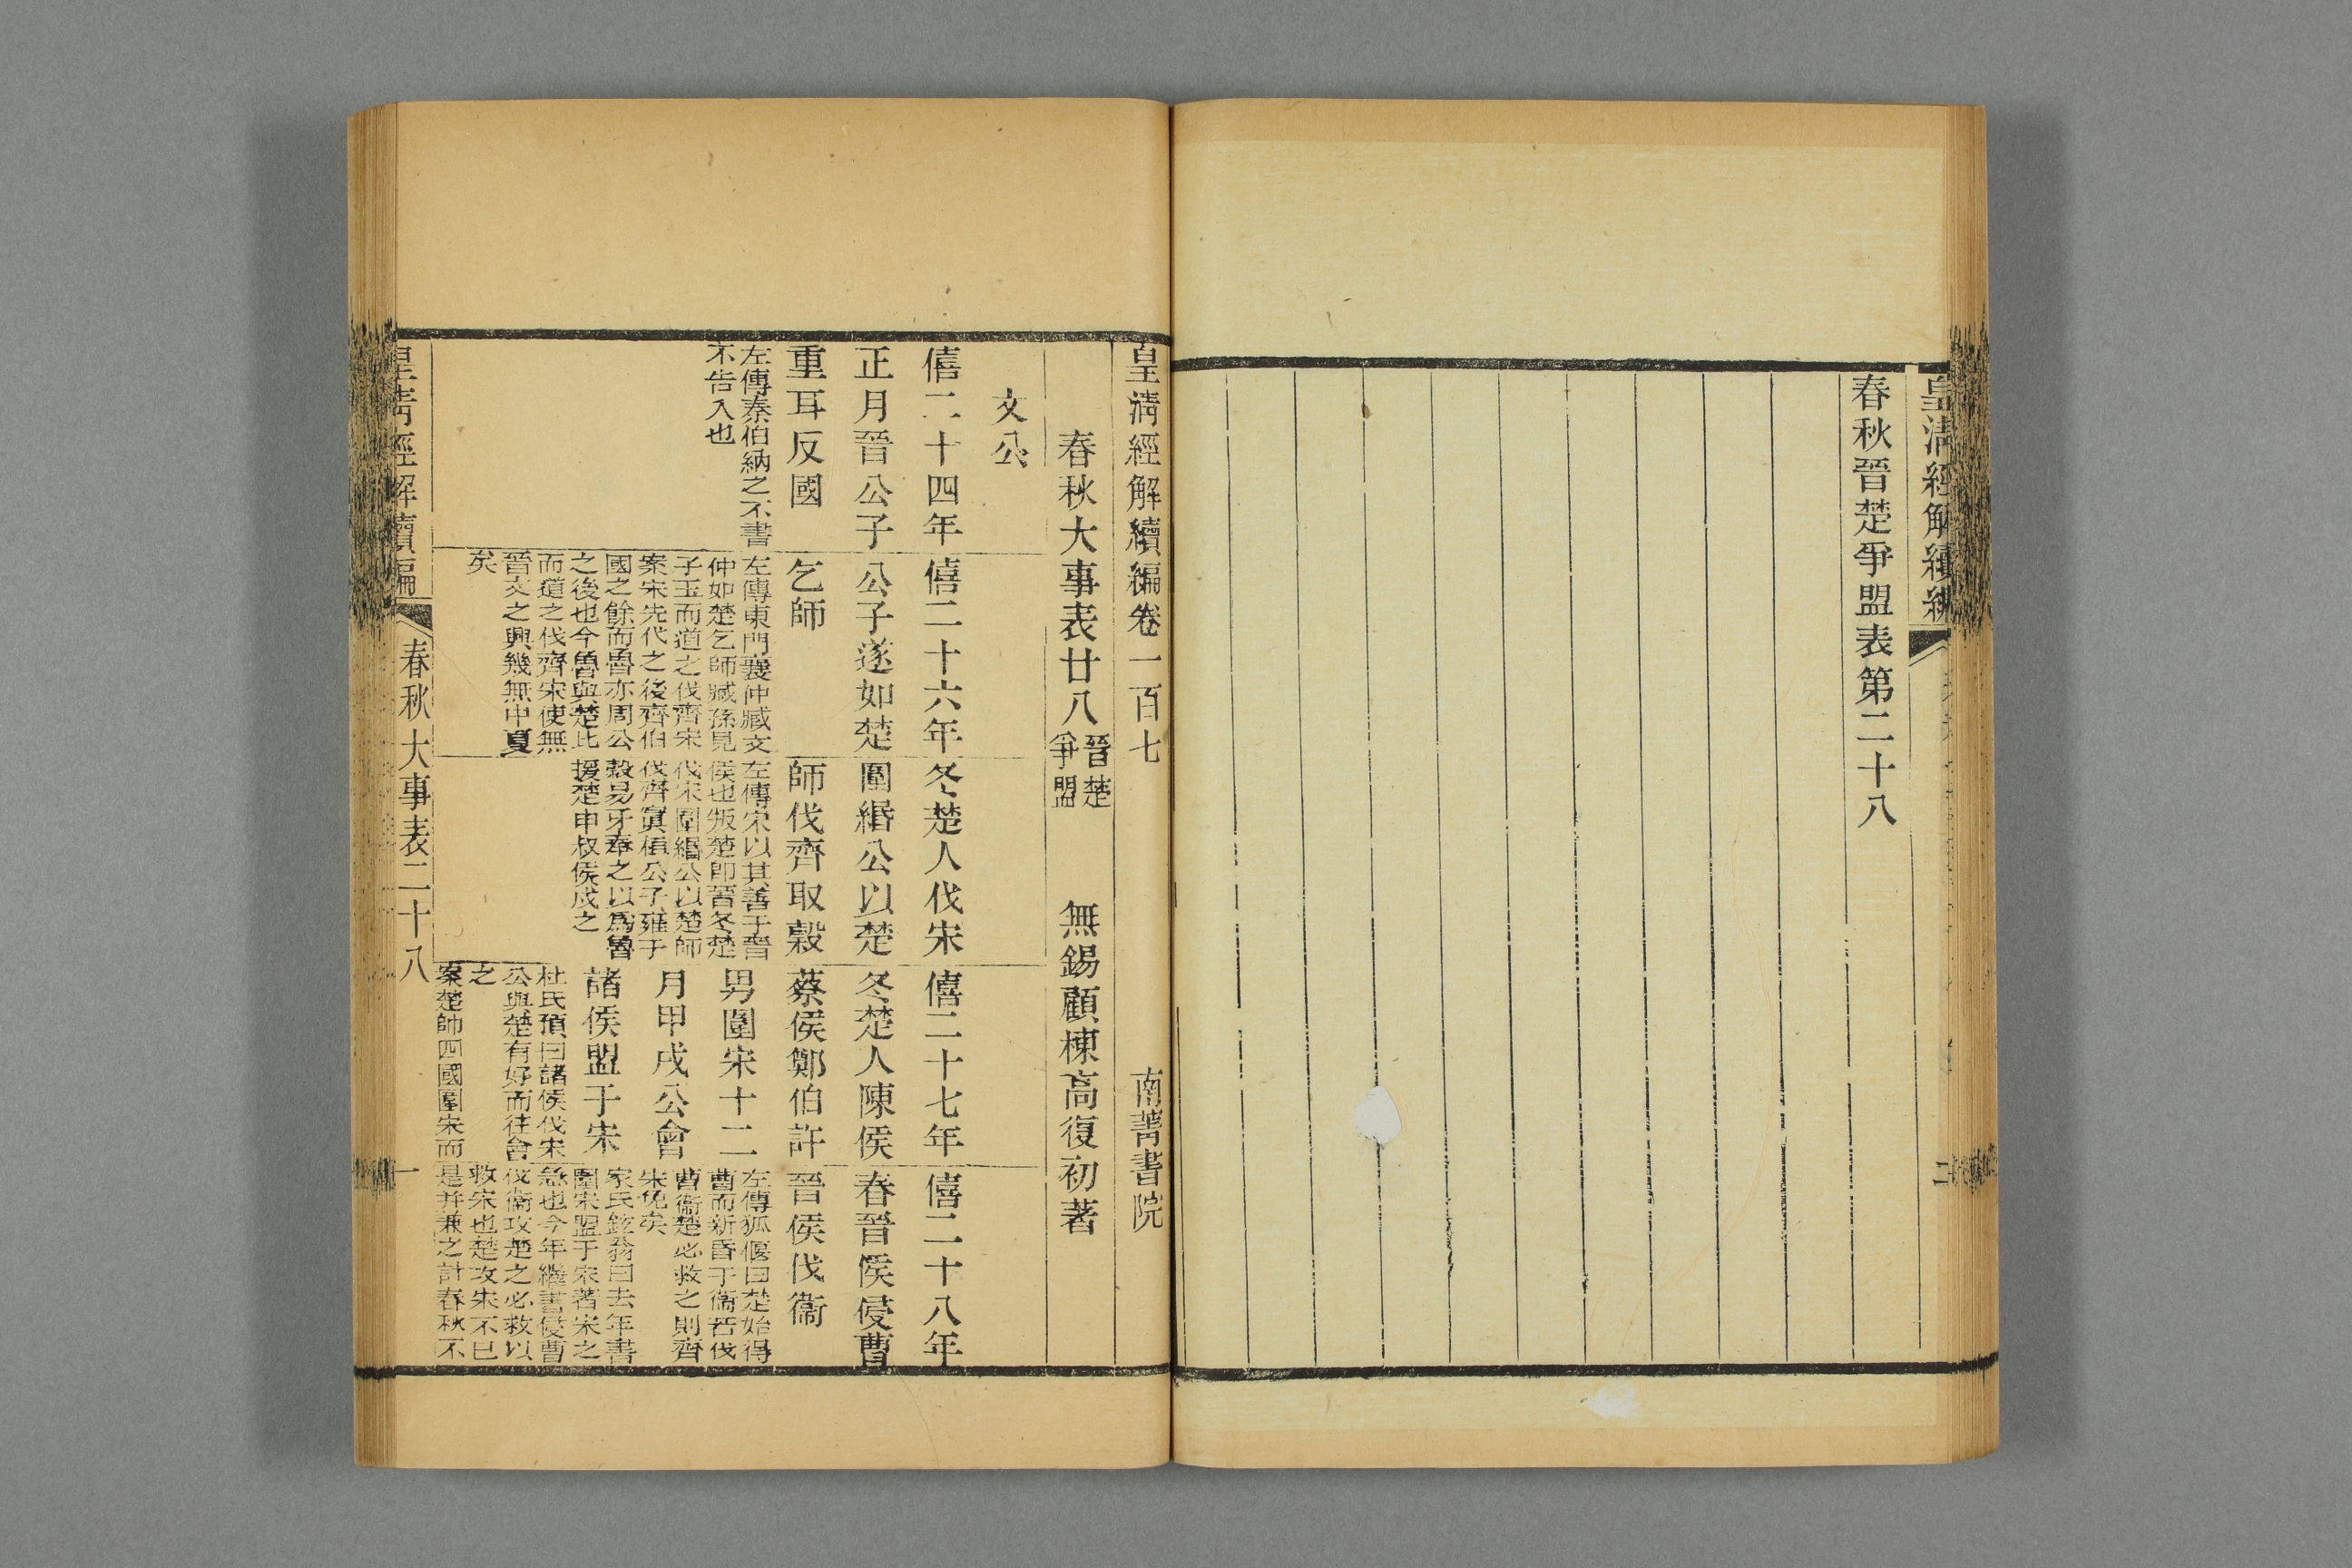 皇清經解續編
春秋晉楚爭盟表第二十八
二
皇清經解續編卷一百七
南菁書院
春秋大事表廿八
晉楚
爭盟
無錫顧棟高復初著
文公
僖二十四年
正月晉公子
重耳反國
左傳秦伯納之不書
不告入也
僖二十六年
公子遂如楚
乞師
左傳東門襄仲臧文
仲如楚乞師臧孫見
子玉而道之伐齊宋
案宋先代之後齊伯
國之餘而魯亦周公
之後也今魯與楚比
而道之伐齊宋使無
晉文之興幾無中夏
矣
冬楚人伐宋
圍緡公以楚
師伐齊取穀
左傳宋以其善于晉
侯也叛楚即晉冬楚
伐宋圍緡公以楚師
伐齊寘桓公子雍于
穀易牙奉之以爲魯
援楚申叔侯戍之
僖二十七年
冬楚人陳侯
蔡侯鄭伯許
男圍宋十二
月甲戌公會
諸侯盟于宋
杜氏預曰諸侯伐宋
公與楚有好而往會
之
案楚帥四國圍宋而
僖二十八年
春晉侯侵曹
晉侯伐衞
左傳狐偃曰楚始得
曹而新昏于衞若伐
曹衞楚必救之則齊
宋免矣
家氏鉉翁曰去年書
圍宋盟于宋著宋之
急也今年繼書侵曹
伐衞攻楚之必救以
救宋也楚攻宋不已
是并兼之計春秋不
皇清經解續編
春秋大事表二十八
一